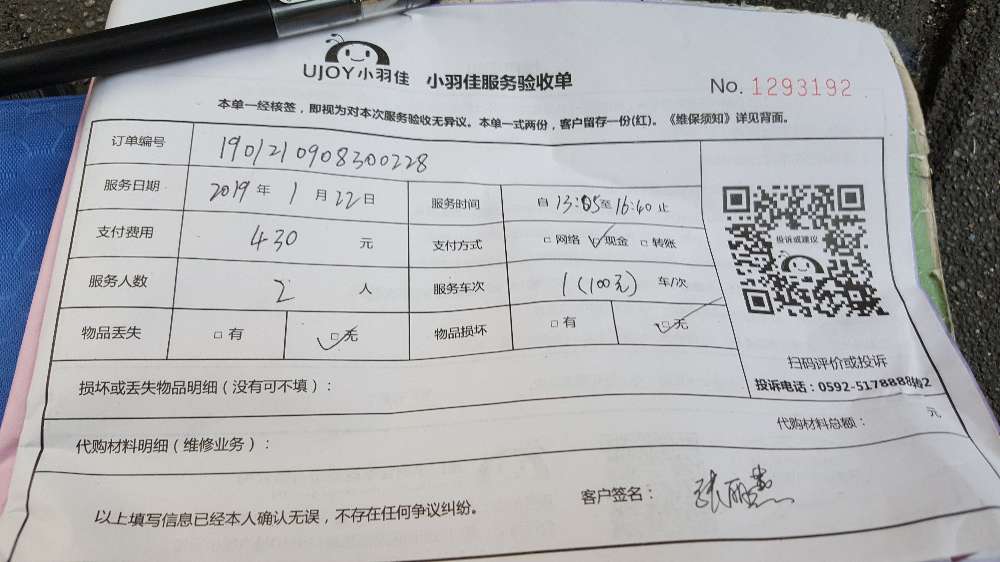 UJOY小羽佳 小羽佳服务验收单 No. 1293192
本单一经核签，即视为对本次服务验收无异议。本单一式两份，客户留存一份(红)。《维保须知》详见背面。
订单编号 190121090830022​8
服务日期 2019年1月22日 服务时间 自13:05至16:40止
支付费用 430 元 支付方式 □网络 ☑现金 □转账
服务人数 2 人 服务车次 1(100元) 车/次
物品丢失 □有 ☑无 物品损坏 □有 ☑无
投诉或建议
扫码评价或投诉
投诉电话：0592-5178888转2
损坏或丢失物品明细（没有可不填）：
代购材料明细（维修业务）： 代购材料总额： 元
以上填写信息已经本人确认无误，不存在任何争议纠纷。 客户签名： 张丽惠